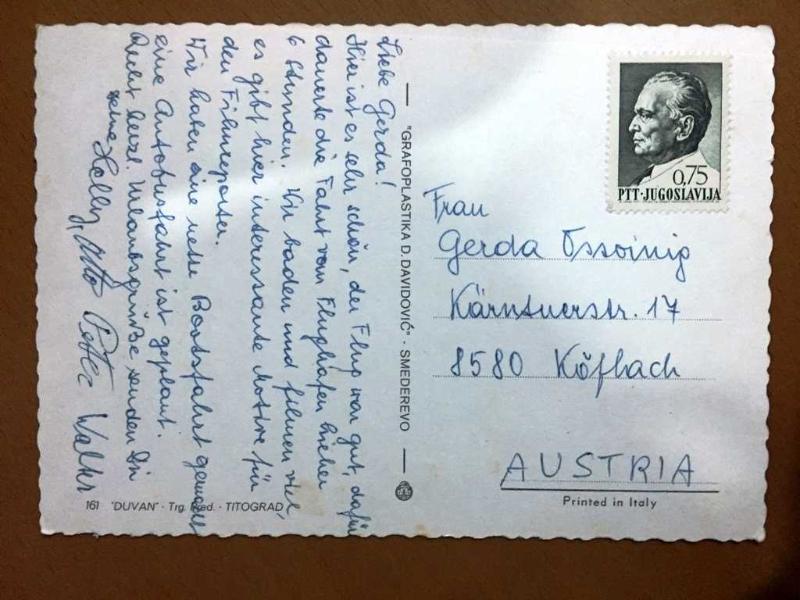 Liebe Gerda!
Hier ist es sehr schön, der Flug war gut, dafür
dauerte die Fahrt vom Flughafen hieher
6 Stunden. Wir baden und filmen viel
es gibt hier interessante Motive für
den Filmreporter.
Wir haben eine nette Bootsfahrt gemacht
eine Autobusfahrt ist geplant.
Recht herzl. Urlaubsgrüße senden Dir
Helly, Otto Peter Walter
"GRAFOPLASTIKA D. DAVIDOVIĆ" · SMEDEREVO
161 "DUVAN" · Trg. Pred. · TITOGRAD
0,75
PTT·JUGOSLAVIJA
Frau
Gerda Ossoinig
Kärntnerstr. 17
8580 Köflach
AUSTRIA
Printed in Italy